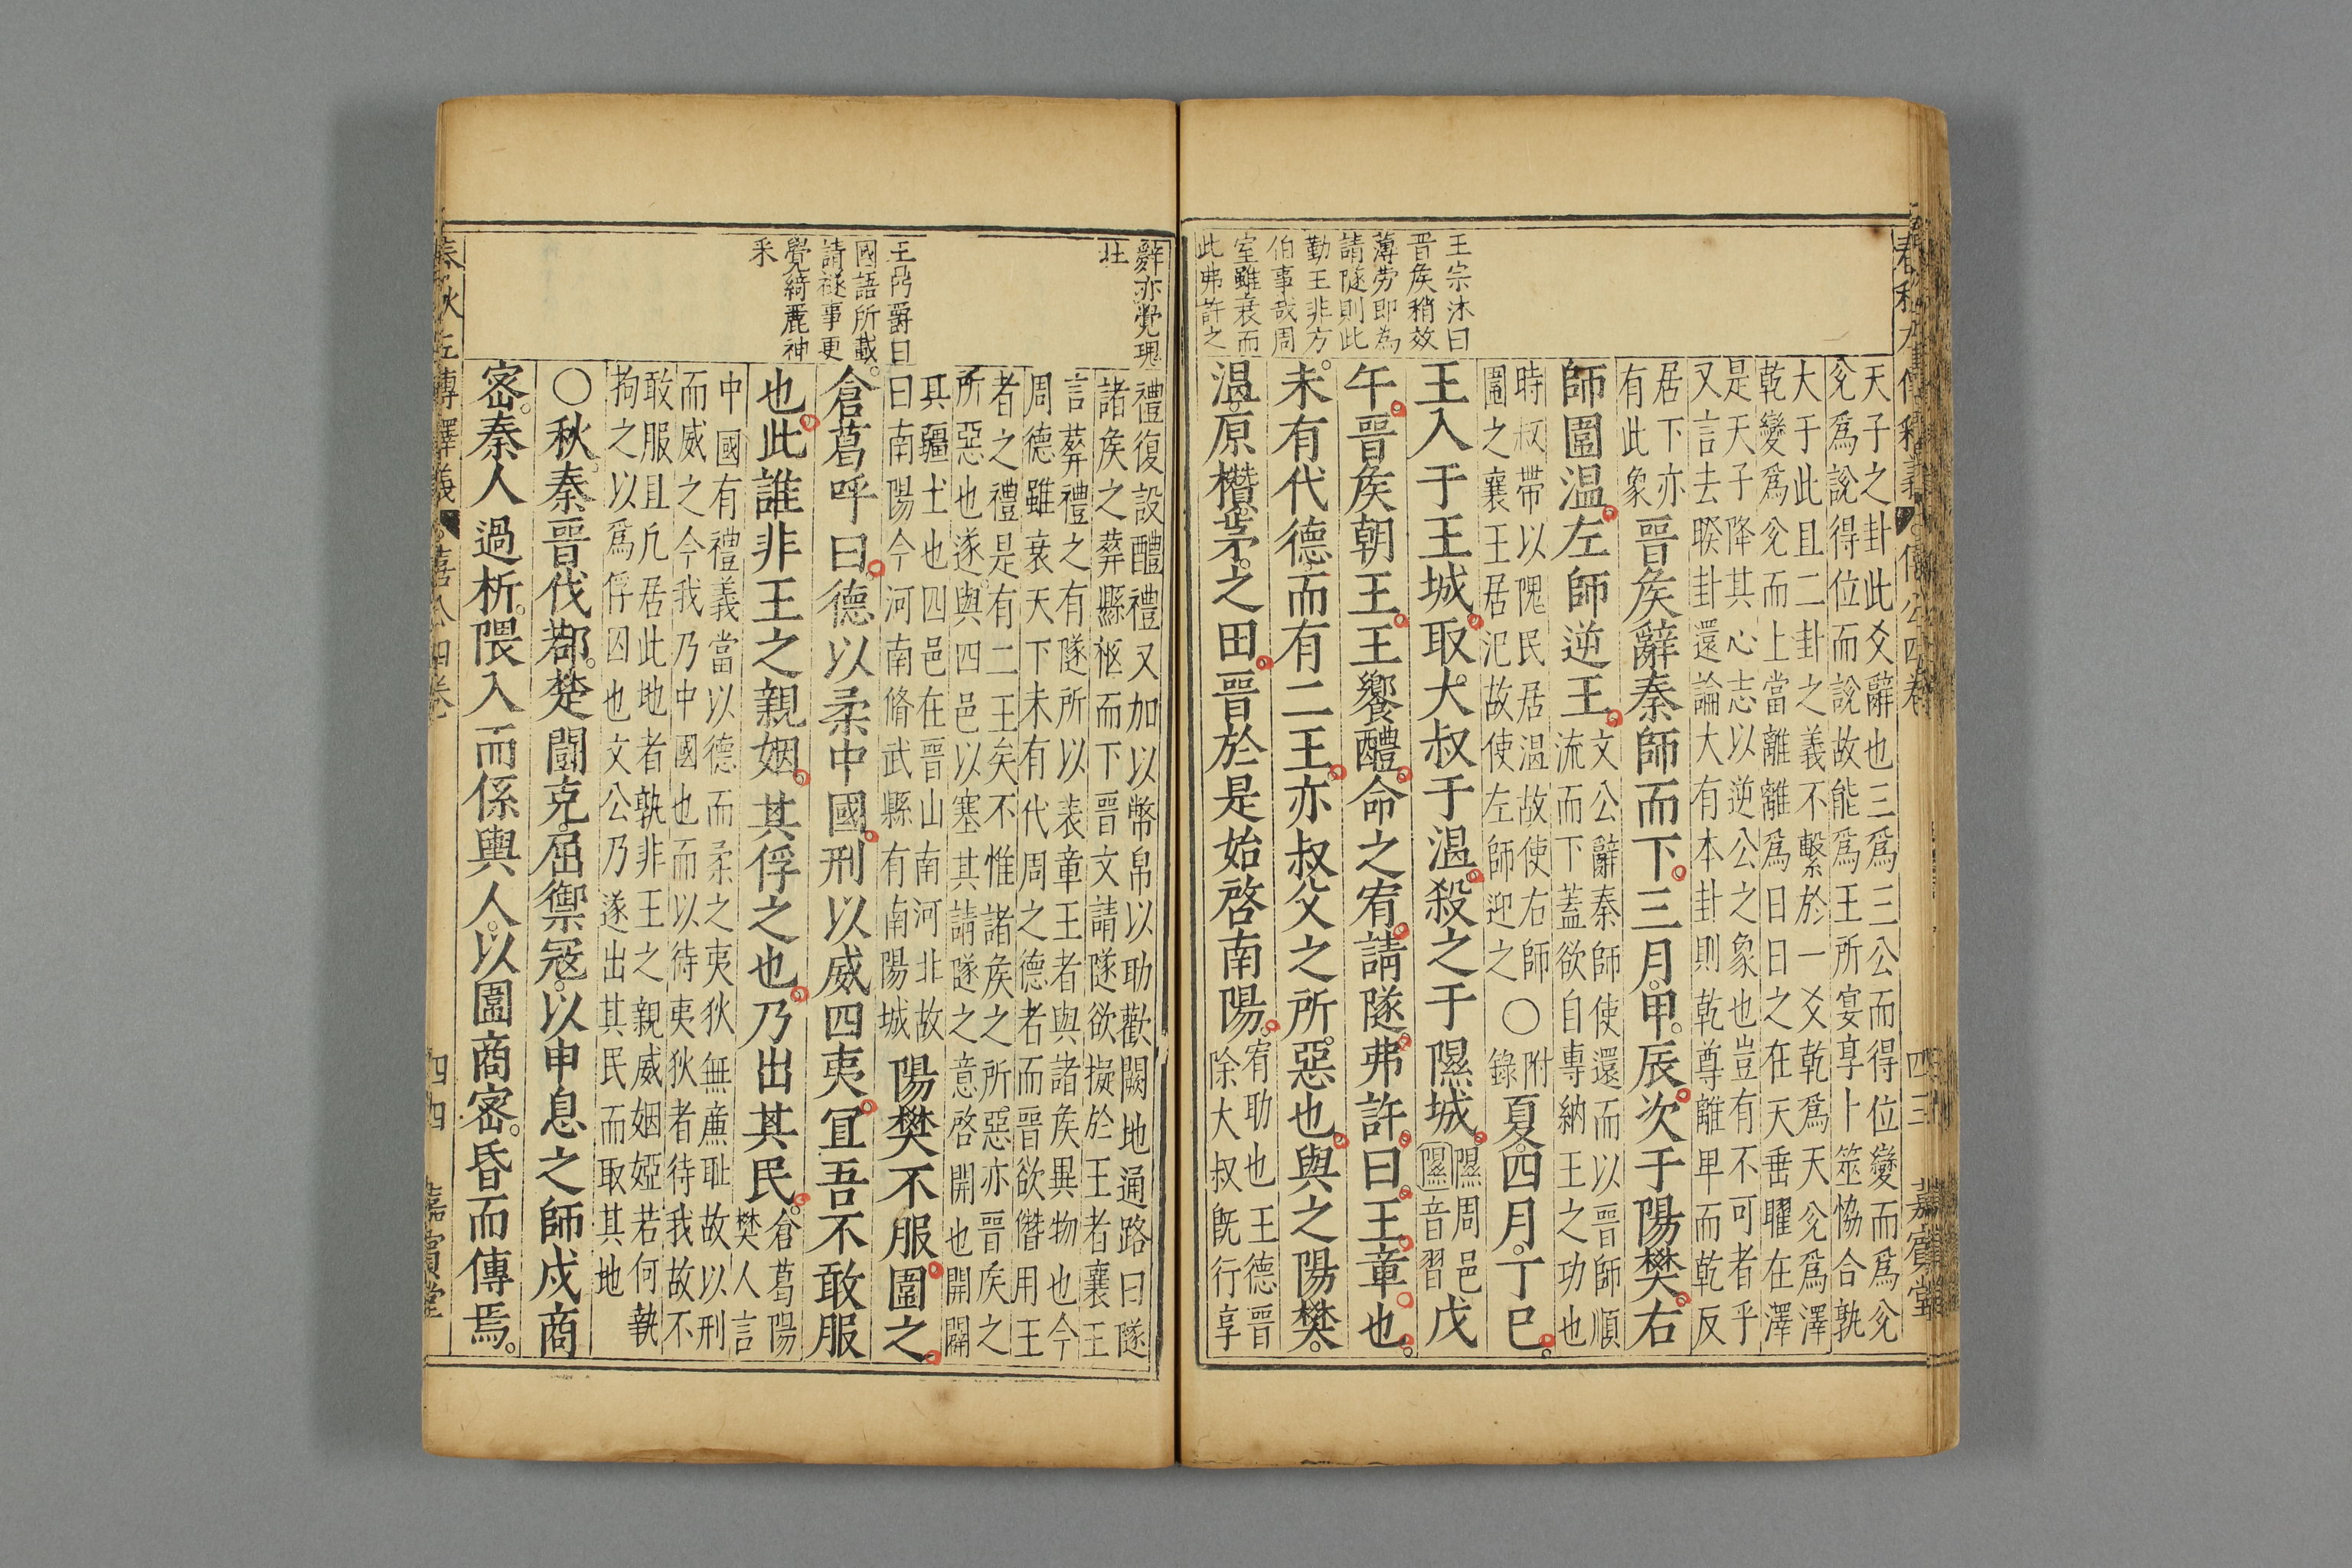 春秋左傳釋義 僖公四卷 四三 嘉賓堂
王宗沐曰
晋矦稍效
薄劳即為
請隧則此
勤王非方
伯事哉周
室雖衰而
此弗許之
天子之卦此爻辭也三爲三公而得位變而爲兊
兊爲說得位而說故能爲王所宴享卜筮恊合孰
大于此且二卦之義不繫於一爻乾爲天兊爲澤
乾變爲兊而上當離離爲日日之在天垂曜在澤
是天子降其心志以逆公之象也豈有不可者乎
又言去睽卦還論大有本卦則乾尊離卑而乾反
居下亦
有此象
晋矦辭秦師而下。三月。甲。辰。次于陽樊。右
師圍温。左師逆王。
文公辭秦師使還而以晋師順
流而下蓋欲自專納王之功也
時叔帶以隗民居温故使右師
圍之襄王居氾故使左師迎之
○
附
錄
夏。四月。丁巳。
王入于王城。取大叔于温。殺之于隰城。
隰周邑
隰音習
戊
午。晋矦朝王。王饗醴。命之宥。請隧。弗許。曰。王章也。
未有代德。而有二王。亦叔父之所惡也。與之陽樊。
温。原。欑。茅。之田。晋於是始啓南陽。
宥助也王德晋
除大叔旣行享
辭亦覺瑰
壯
王凣爵曰
國語所載
請隧事更
覺綺麗神
釆
禮復設醴禮又加以幣帛以助歡闕地通路曰隧
諸矦之葬縣柩而下晋文請隧欲擬於王者襄王
言葬禮之有隧所以表章王者與諸矦異物也今
周德雖衰天下未有代周之德者而晋欲僣用王
者之禮是有二王矣不惟諸矦之所惡亦晋矦之
所惡也遂與四邑以塞其請隧之意啓開也開闢
其疆土也四邑在晋山南河北故
曰南陽今河南脩武縣有南陽城
陽樊不服。圍之。
倉葛呼曰。德以柔中國。刑以威四夷。宜吾不敢服
也。此誰非王之親姻。其俘之也。乃出其民。
倉葛陽
樊人言
中國有禮義當以德而柔之夷狄無亷耻故以刑
而威之今我乃中國也而以待夷狄者待我故不
敢服且凡居此地者孰非王之親威姻婭若何執
拘之以爲俘囚也文公乃遂出其民而取其地
○秋。秦晋伐鄀。楚鬪克。屈禦冦。以申息之師戍商
密。秦人過析。隈入而係輿人。以圍商密。昏而傳焉。
春秋左傳釋義 僖公四卷 四四 嘉賓堂